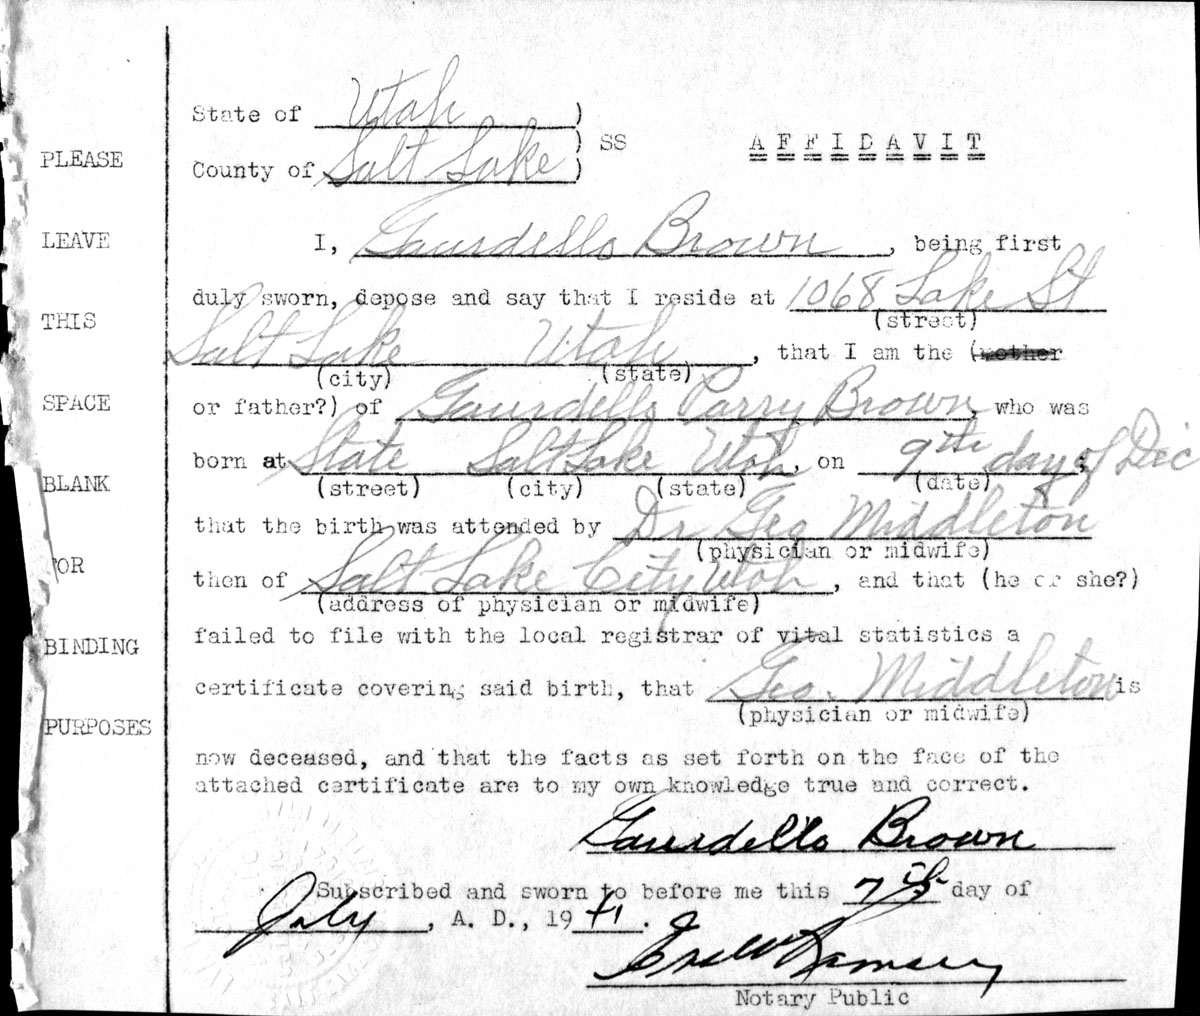 State of Utah )
) SS
A F F I D A V I T
County of Salt Lake )
PLEASE
LEAVE
THIS
SPACE
BLANK
FOR
BINDING
PURPOSES
I, Gausdello Brown, being first
duly sworn, depose and say that I reside at 1068 Lake St
(street)
Salt Lake Utah, that I am the (mother
(city) (state)
or father?) of Gausdello Parry Brown, who was
born at State Salt Lake Utah, on 9th day of Dec;
(street) (city) (state) (date)
that the birth was attended by Dr Geo Middleton
(physician or midwife)
then of Salt Lake City Utah, and that (he or she?)
(address of physician or midwife)
failed to file with the local registrar of vital statistics a
certificate covering said birth, that Geo. Middleton is
(physician or midwife)
now deceased, and that the facts as set forth on the face of the
attached certificate are to my own knowledge true and correct.
Gausdello Brown
Subscribed and sworn to before me this 7th day of
July, A. D., 1941.
Ramsey
Notary Public